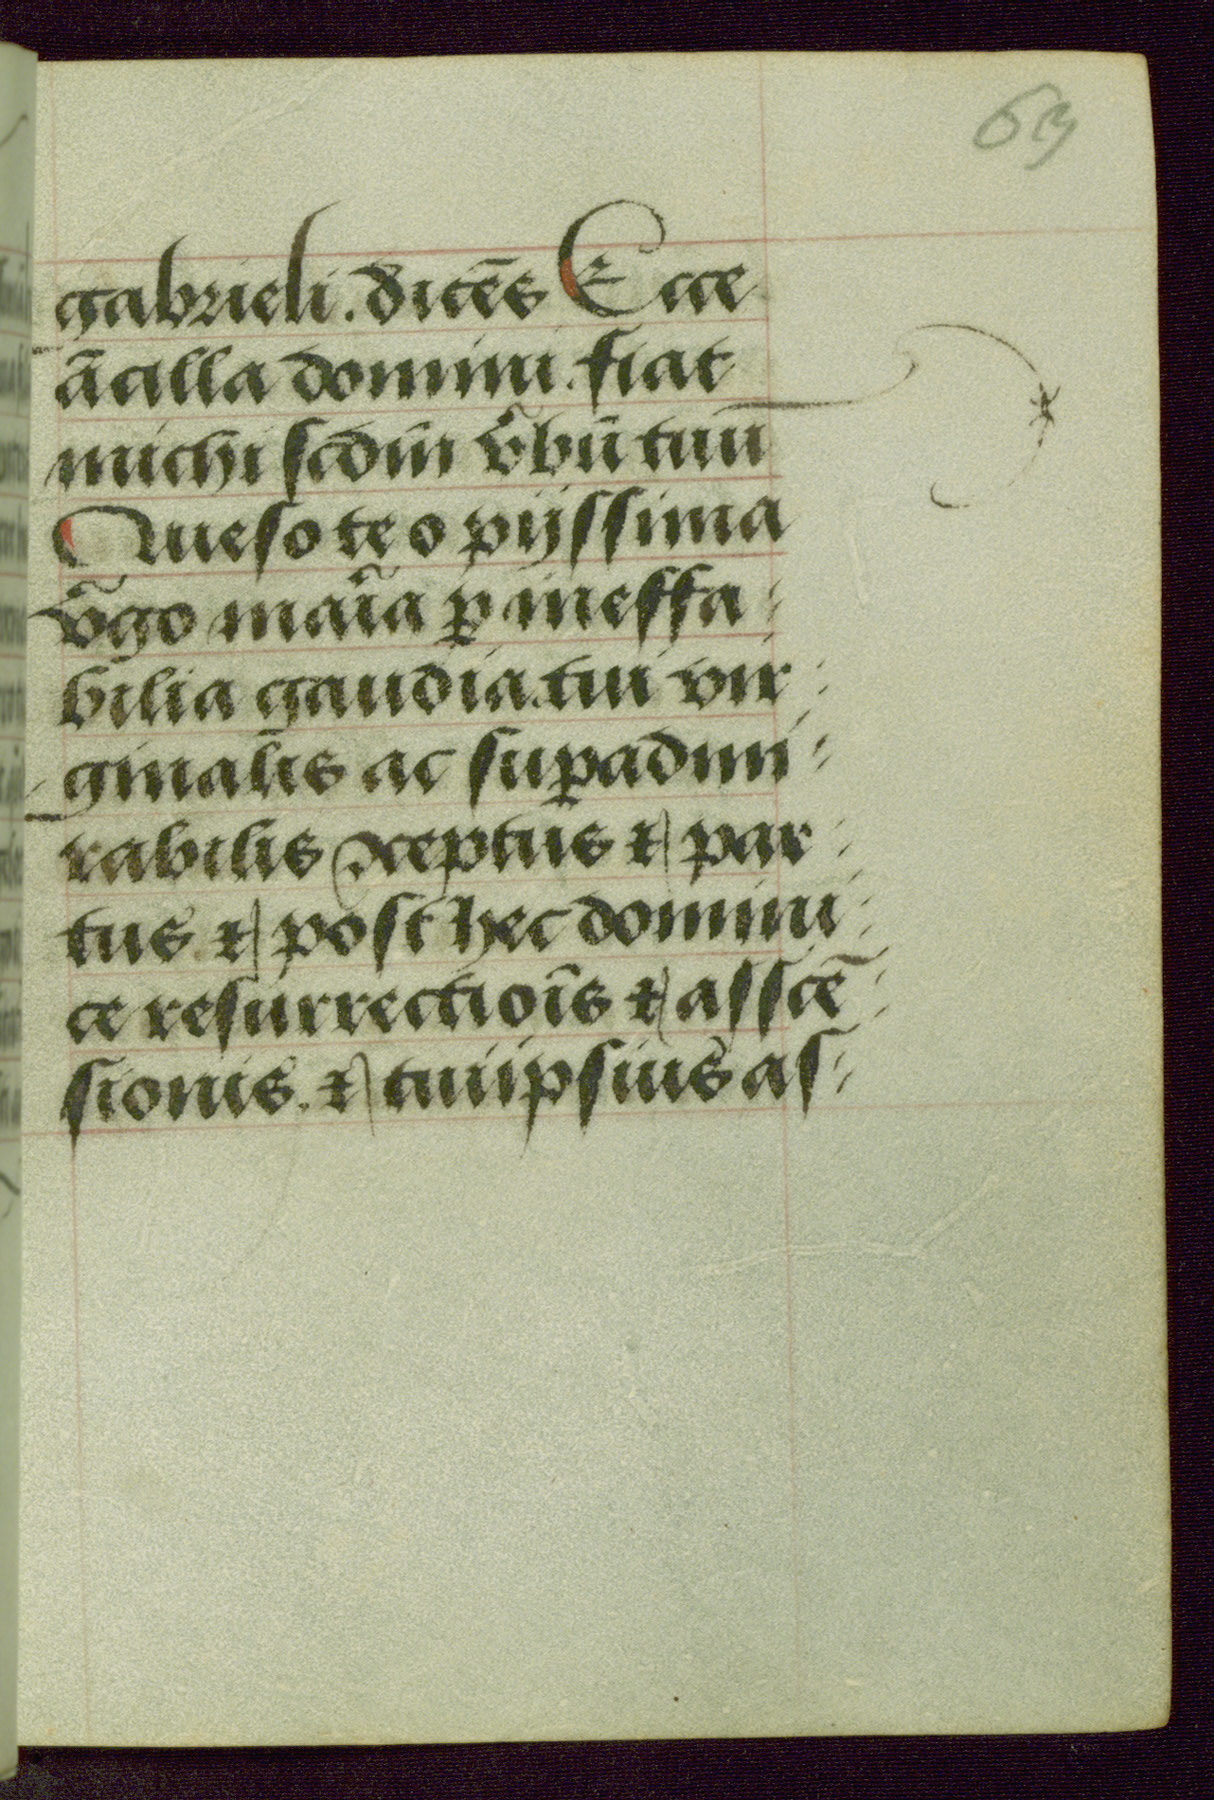 69
gabrieli. dicēs Ecce
ācilla domini. fiat
michi scdm̄ v̄bū tuū
Queso te o pijssima
v̄go mar̄ia ꝑ ineffa-
bilia gaudia tui vir-
ginalis ac suꝑadmi-
rabilis ↄceptus et par-
tus et post hec domini-
ce resurrectiōis et asscē-
sionis. et tui ipsius as-